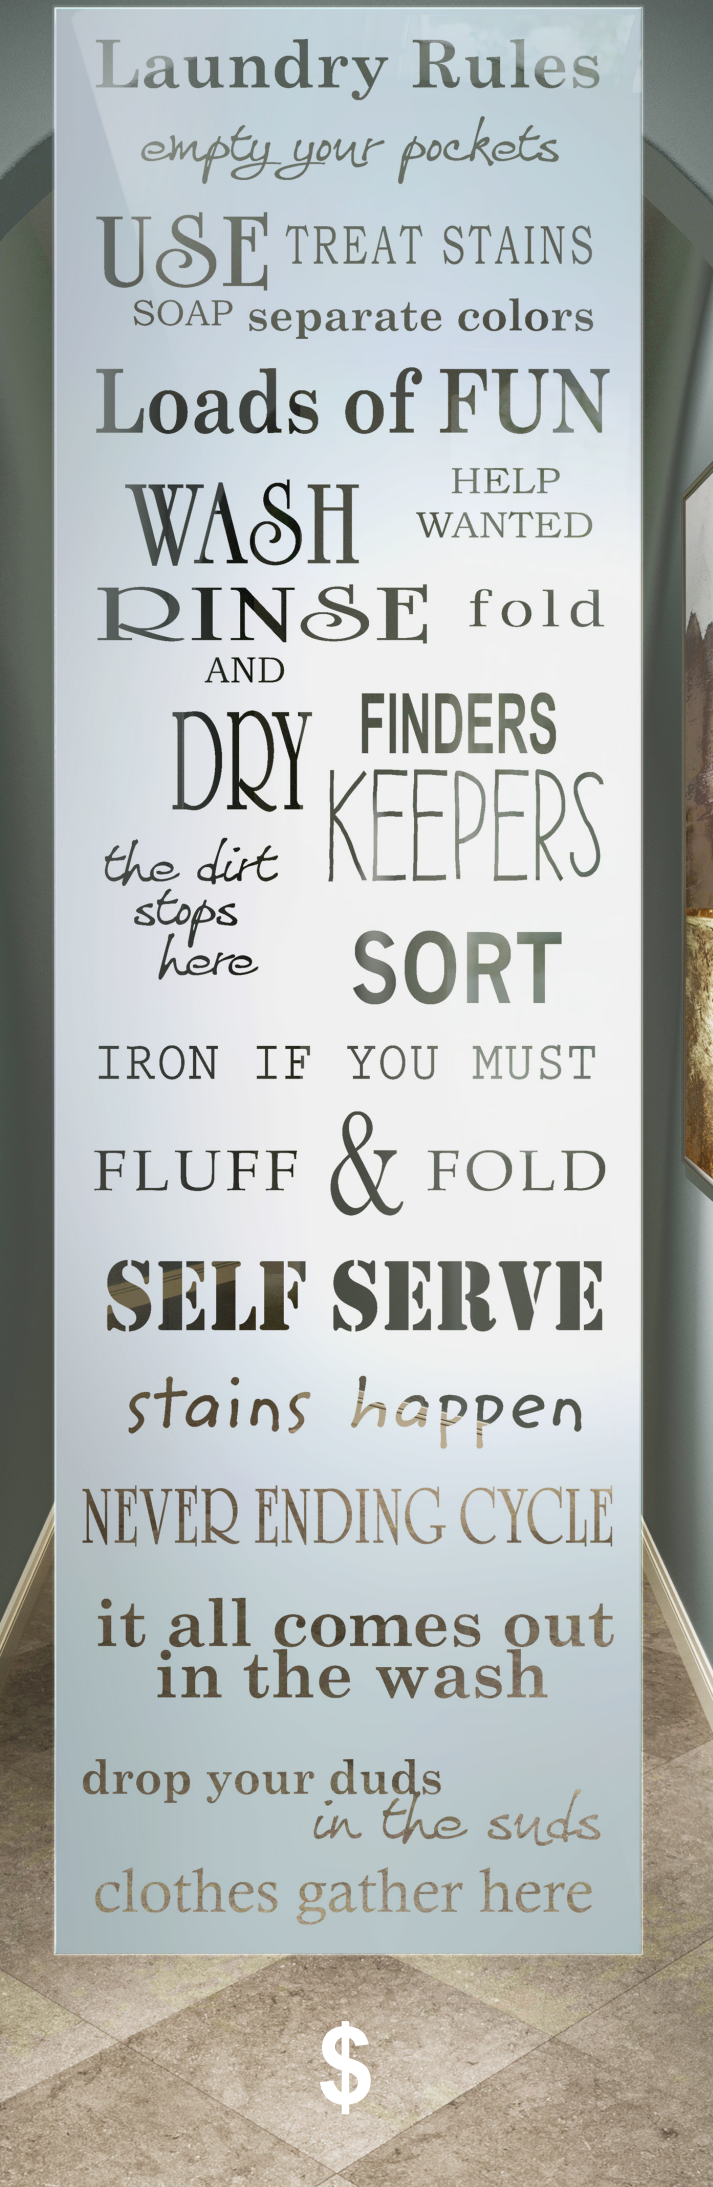 Laundry Rules
empty your pockets
USE TREAT STAINS
SOAP separate colors
Loads of FUN
WASH
HELP
WANTED
RINSE fold
AND
DRY
FINDERS
KEEPERS
the dirt
stops
here
SORT
IRON IF YOU MUST
FLUFF & FOLD
SELF SERVE
stains happen
NEVER ENDING CYCLE
it all comes out
in the wash
drop your duds
in the suds
clothes gather here
$